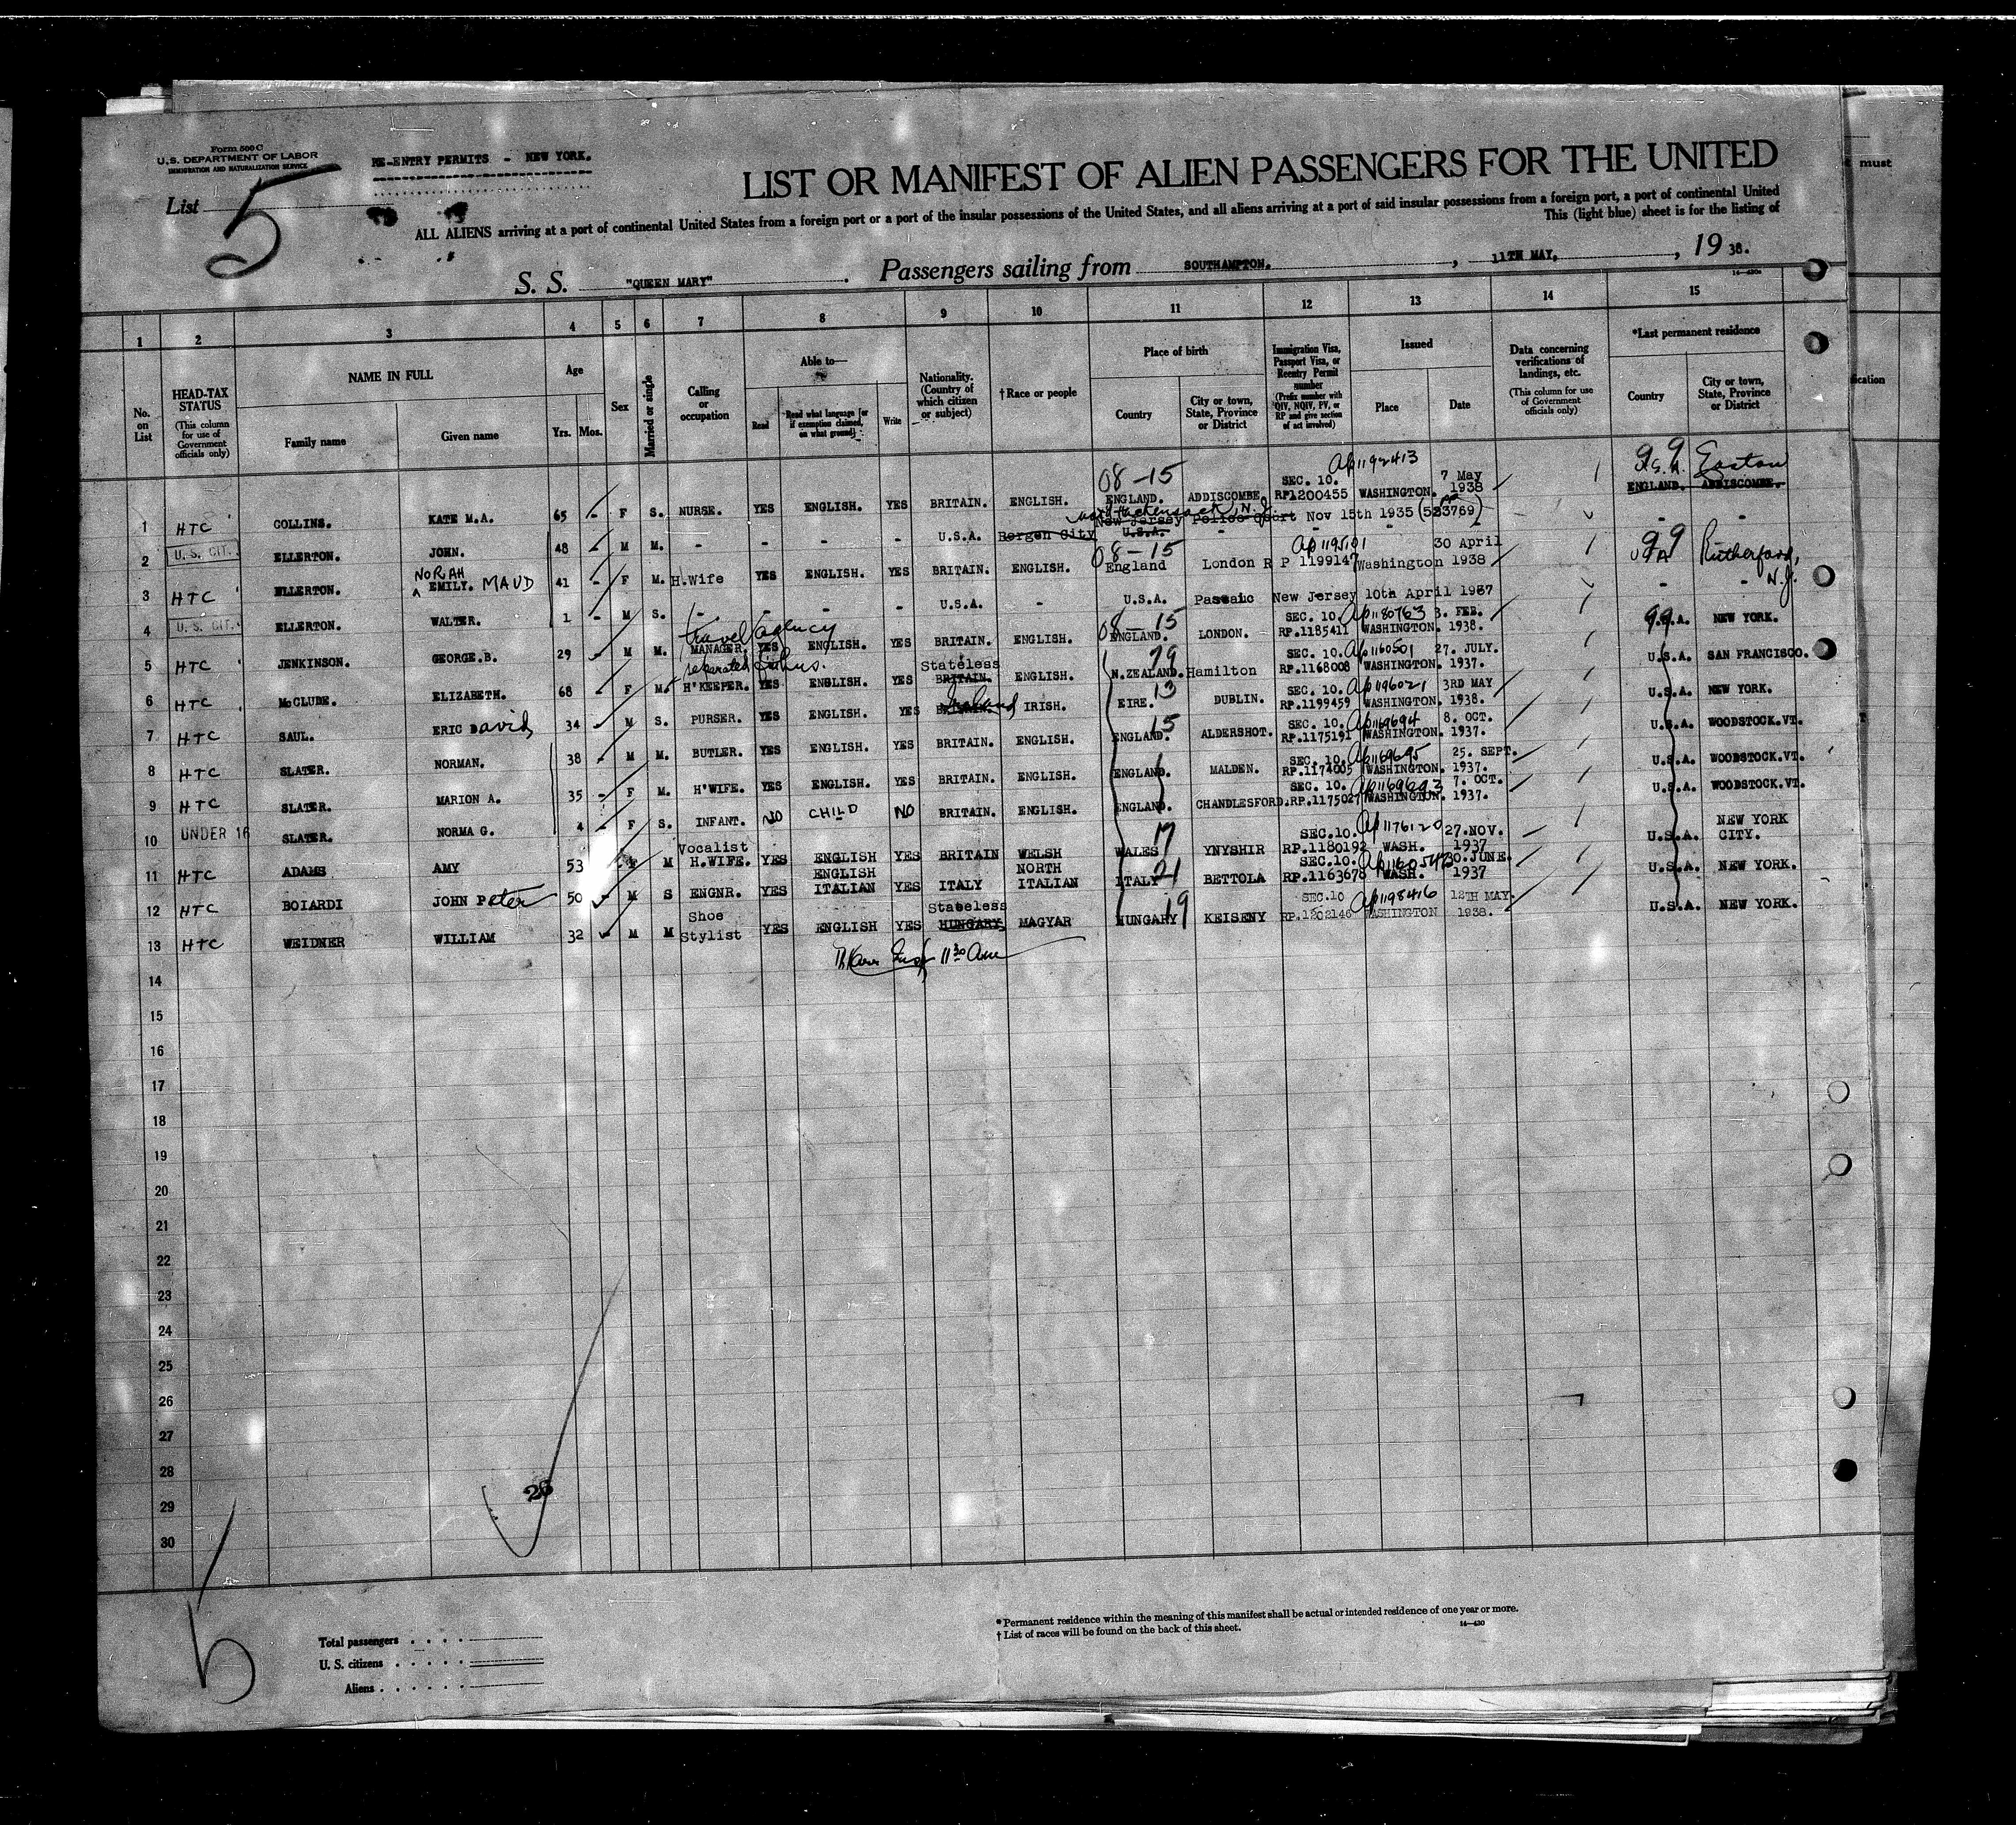 Form 500 C
U. S. DEPARTMENT OF LABOR
IMMIGRATION AND NATURALIZATION SERVICE
RE-ENTRY PERMITS - NEW YORK.
List 5
LIST OR MANIFEST OF ALIEN PASSENGERS FOR THE UNITED
ALL ALIENS arriving at a port of continental United States from a foreign port or a port of the insular possessions of the United States, and all aliens arriving at a port of said insular possessions from a foreign port, a port of continental United
This (light blue) sheet is for the listing of
S. S. "QUEEN MARY" . Passengers sailing from SOUTHAMPTON. , 11TH MAY. , 19 38.
1 2 3 4 5 6 7 8 9 10 11 12 13 14 15
No. on List
HEAD-TAX STATUS (This column for use of Government officials only)
NAME IN FULL
Family name Given name
Age Yrs. Mos.
Sex
Married or single
Calling or occupation
Able to— Read Read what language [or if exemption claimed, on what ground] Write
Nationality. (Country of which citizen or subject)
†Race or people
Place of birth
Country City or town, State, Province or District
Immigration Visa, Passport Visa, or Reentry Permit number (Prefix number with QIV, NQIV, PV, or RP and give section of act involved)
Issued
Place Date
Data concerning verifications of landings, etc. (This column for use of Government officials only)
*Last permanent residence
Country City or town, State, Province or District
1 HTC COLLINS. KATE M.A. 65 - F S. NURSE. YES ENGLISH. YES BRITAIN. ENGLISH. 08-15 ENGLAND. ADDISCOMBE SEC. 10. RP1200455 Ap1192413 WASHINGTON. 7 May 1938 99 U.S.A. Easton ENGLAND. ADDISCOMBE.
2 U. S. CIT. ELLERTON. JOHN. 48 - M M. - - - - U.S.A. Bergen City Hackensack, N.J. New Jersey Police Court Nov 15th 1935 (523769) U.S.A. - - - - -
3 HTC ELLERTON. NORAH EMILY. MAUD 41 - F M. H.Wife YES ENGLISH. YES BRITAIN. ENGLISH. 08-15 England London R P 1199147 Ap1195101 Washington 30 April 1938 99 USA Rutherford, N.J.
4 U. S. CIT. ELLERTON. WALTER. 1 - M S. - - - - U.S.A. - U.S.A. Passaic New Jersey 10th April 1937 - -
5 HTC JENKINSON. GEORGE.B. 29 - M M. travel agency MANAGER. YES ENGLISH. YES BRITAIN. ENGLISH. 08-15 ENGLAND. LONDON. SEC. 10. RP.1185411 Ap1180763 WASHINGTON. 3. FEB. 1938. 99 U.S.A. NEW YORK.
6 HTC McCLUDE. ELIZABETH. 68 - F M. H'KEEPER. YES ENGLISH. YES Stateless BRITAIN. ENGLISH. 79 N.ZEALAND. Hamilton SEC. 10. RP.1168008 Ap1160501 WASHINGTON. 27. JULY. 1937. U.S.A. SAN FRANCISCO.
7 HTC SAUL. ERIC David 34 M S. PURSER. YES ENGLISH. YES Ireland IRISH. 13 EIRE. DUBLIN. SEC. 10. RP.1199459 Ap1196021 WASHINGTON. 3RD MAY 1938. U.S.A. NEW YORK.
8 HTC SLATER. NORMAN. 38 - M M. BUTLER. YES ENGLISH. YES BRITAIN. ENGLISH. 15 ENGLAND. ALDERSHOT. SEC. 10. RP.1175191 Ap1169694 WASHINGTON. 8. OCT. 1937. U.S.A. WOODSTOCK.VT.
9 HTC SLATER. MARION A. 35 - F M. H'WIFE. YES ENGLISH. YES BRITAIN. ENGLISH. ENGLAND. MALDEN. SEC. 10. RP.1174005 Ap1169695 WASHINGTON. 25. SEPT. 1937. U.S.A. WOODSTOCK.VT.
10 UNDER 16 SLATER. NORMA G. 4 - F S. INFANT. NO CHILD NO BRITAIN. ENGLISH. ENGLAND. CHANDLESFORD. SEC. 10. RP.1175027 Ap1169693 WASHINGTON. 7. OCT. 1937. U.S.A. WOODSTOCK.VT.
11 HTC ADAMS AMY 53 F M Vocalist H.WIFE. YES ENGLISH YES BRITAIN WELSH 17 WALES YNYSHIR SEC.10. RP.1180192 Ap1176120 WASH. 27.NOV. 1937 U.S.A. NEW YORK CITY.
12 HTC BOIARDI JOHN Peter 50 - M S ENGNR. YES ENGLISH ITALIAN YES ITALY NORTH ITALIAN 21 ITALY BETTOLA SEC.10. RP.1163678 WASH. 30.JUNE. 1937 U.S.A. NEW YORK.
13 HTC WEIDNER WILLIAM 32 - M M Shoe Stylist YES ENGLISH YES Stateless HUNGARY MAGYAR 19 HUNGARY KEISENY SEC.10 RP.1202146 Ap1198416 WASHINGTON 12TH MAY. 1938. U.S.A. NEW YORK.
11 30 Am
14
15
16
17
18
19
20
21
22
23
24
25
26
27
28
29
30
Total passengers
U. S. citizens
Aliens
* Permanent residence within the meaning of this manifest shall be actual or intended residence of one year or more.
† List of races will be found on the back of this sheet.
14—430
must